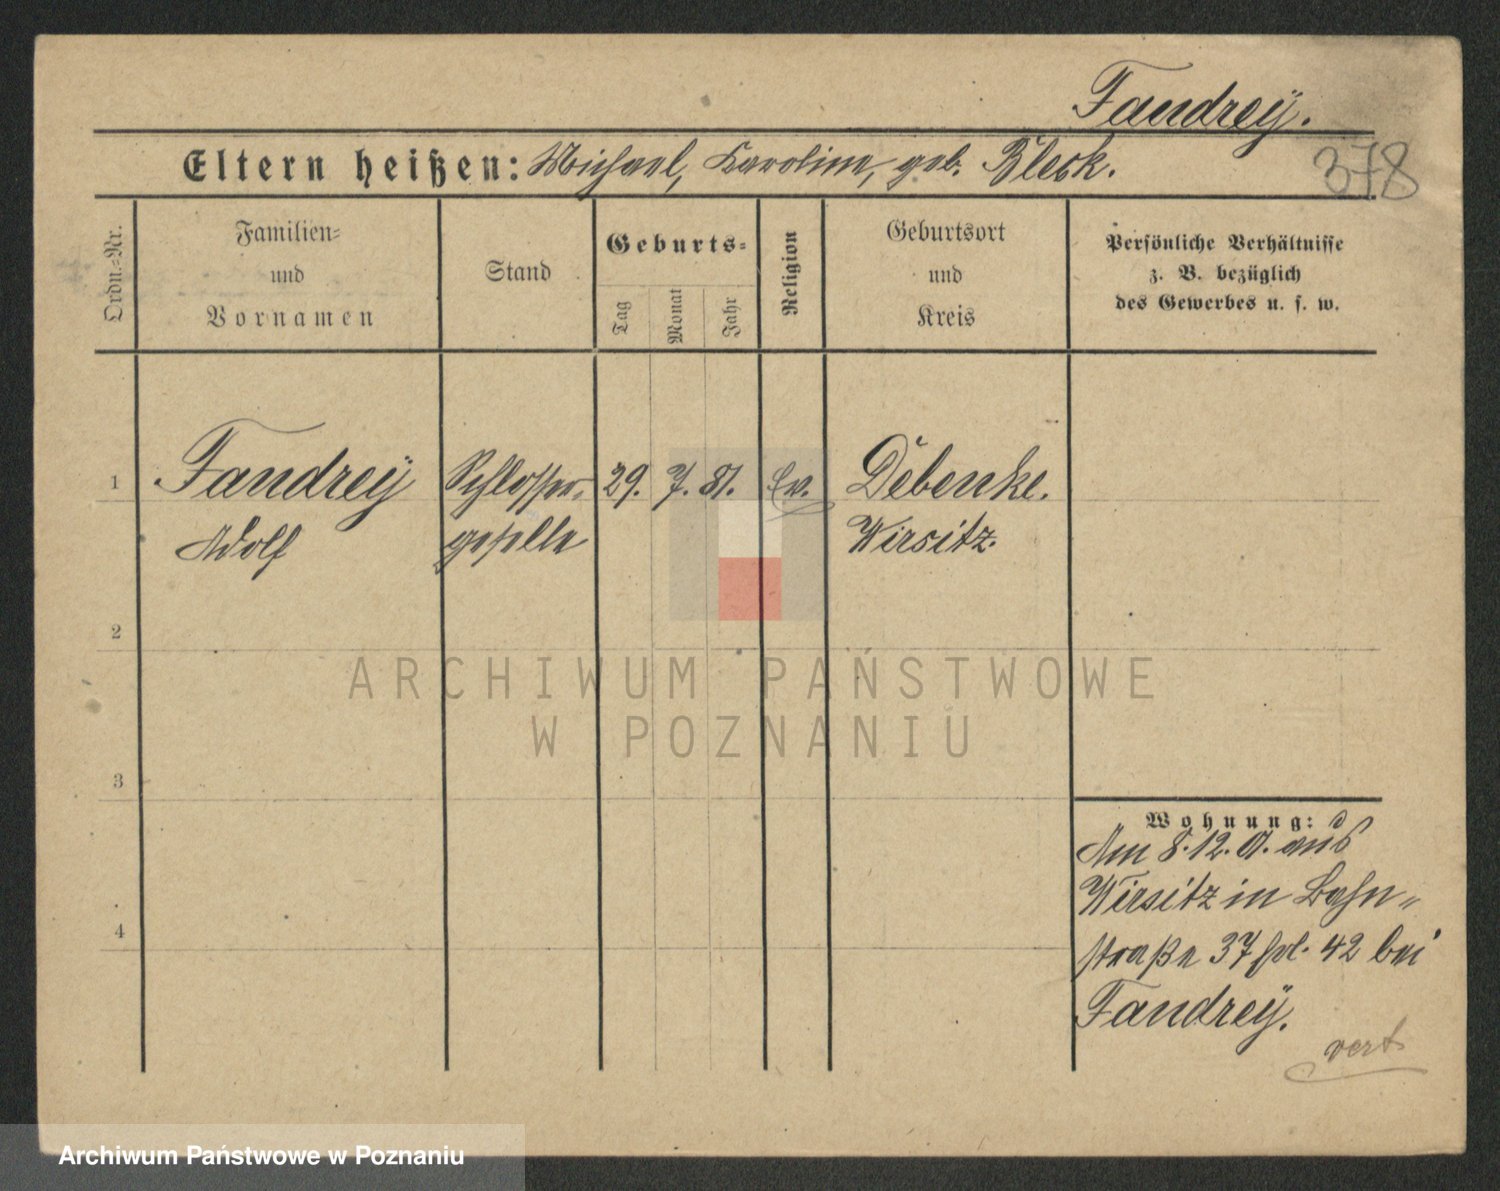 Fandreÿ.
Eltern heißen: Michael, Karoline, geb. Bleck.
378
Ordn.=Nr.
Familien=
und
Vornamen
Stand
Geburts=
Tag
Monat
Jahr
Religion
Geburtsort
und
Kreis
Persönliche Verhältnisse
z. B. bezüglich
des Gewerbes u. s. w.
1 Fandreÿ Schlosser= 29. 7. 81. Ev. Debenke.
Adolf geselle Wirsitz.
2
ARCHIWUM PAŃSTWOWE
W POZNANIU
3
Wohnung:
Am 8.12. 0. aus
Wirsitz in Bahn=
straße 37 42 bei
4
Fandreÿ.
vert
Archiwum Państwowe w Poznaniu